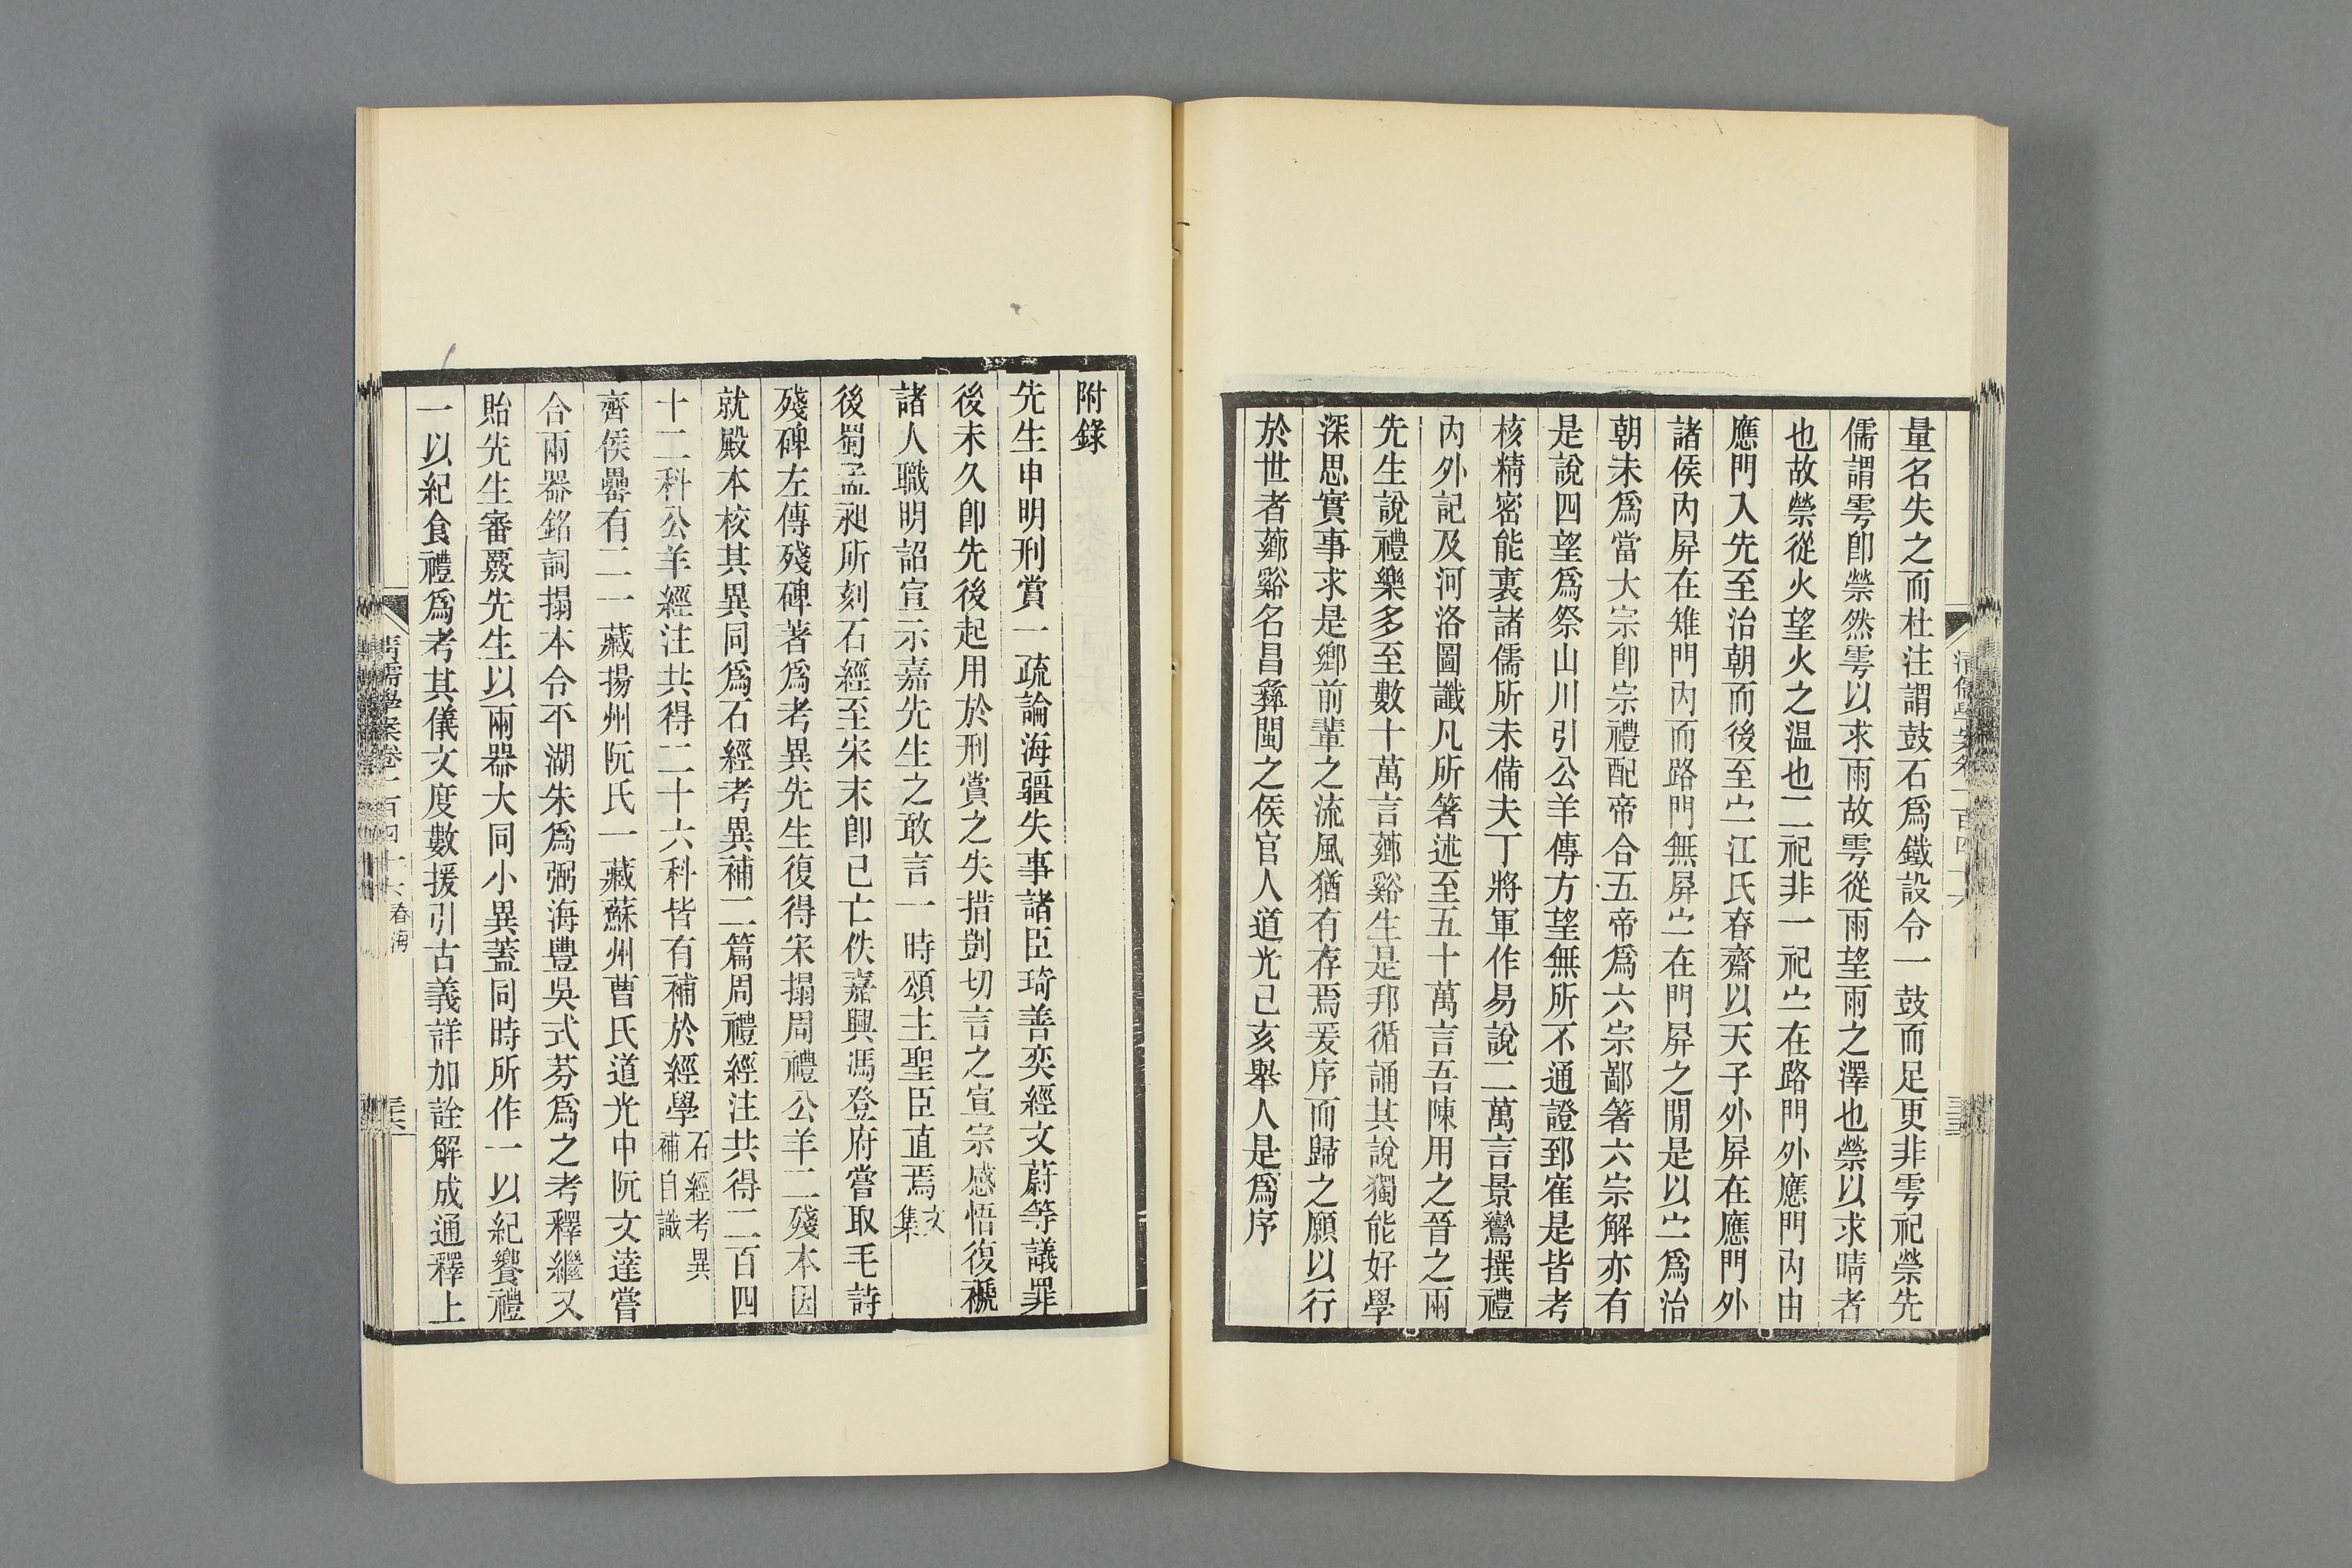 量名失之而杜注謂鼓石爲鐵設令一鼓而足更非雩祀禜先
儒謂雩卽禜然雩以求雨故雩從雨望雨之澤也禜以求晴者
也故禜從火望火之温也二祀非一祀宁在路門外應門內由
應門入先至治朝而後至宁江氏春齋以天子外屏在應門外
諸侯內屏在雉門內而路門無屏宁在門屏之閒是以宁爲治
朝未爲當大宗卽宗禮配帝合五帝爲六宗鄙箸六宗解亦有
是說四望爲祭山川引公羊傳方望無所不通證郅寉是皆考
核精密能裏諸儒所未備夫丁將軍作易說二萬言景鸞撰禮
內外記及河洛圖讖凡所箸述至五十萬言吾陳用之晉之兩
先生說禮樂多至數十萬言薌谿生是邦循誦其說獨能好學
深思實事求是鄉前輩之流風猶有存焉爰序而歸之願以行
於世者薌谿名昌彝閩之侯官人道光己亥舉人是爲序
清儒學案卷一百四十六
三十五
附錄
先生申明刑賞一疏論海疆失事諸臣琦善奕經文蔚等議罪
後未久卽先後起用於刑賞之失措剴切言之宣宗感悟復褫
諸人職明詔宣示嘉先生之敢言一時頌主聖臣直焉文集
後蜀孟昶所刻石經至宋末卽已亡佚嘉興馮登府嘗取毛詩
殘碑左傳殘碑著爲考異先生復得宋搨周禮公羊二殘本因
就殿本校其異同爲石經考異補二篇周禮經注共得二百四
十二科公羊經注共得二十六科皆有補於經學石經考異補自識
齊侯罍有二一藏揚州阮氏一藏蘇州曹氏道光中阮文達嘗
合兩器銘詞搨本令平湖朱爲弼海豐吳式芬爲之考釋繼又
貽先生審覈先生以兩器大同小異蓋同時所作一以紀饗禮
一以紀食禮爲考其儀文度數援引古義詳加詮解成通釋上
清儒學案卷一百四十六 春海
三十六